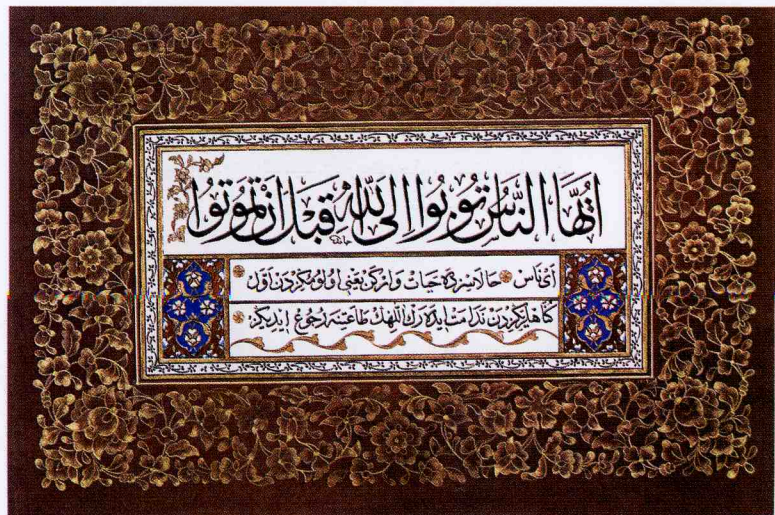 ايها الناس توبوا الى الله قبل ان تموتوا
اى ناس حالا سزده حيات واركن يعنى اولومكزدن اول
كناهلريكزدن ندامت ايده رك اللهك طاعتنه رجوع ايديكز